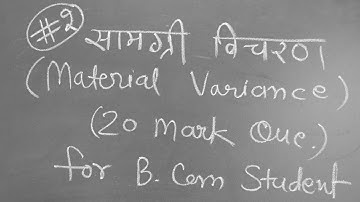 #2 सामग्री विचरण
(Material Variance)
(20 Mark Que.)
for B. Com Student